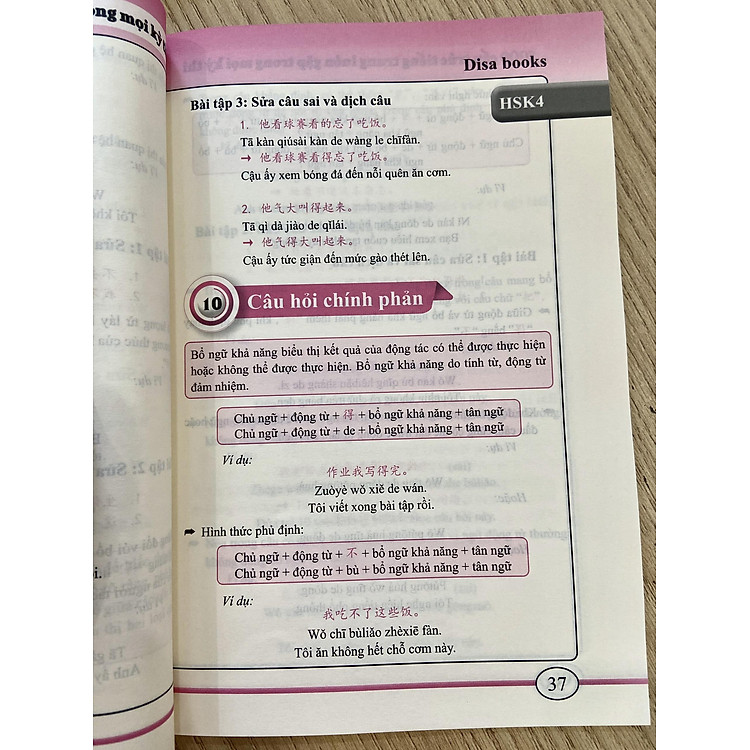 ong mọi kỳ
Disa books
HSK4
Bài tập 3: Sửa câu sai và dịch câu
1. 他看球赛看的忘了吃饭。
Tā kàn qiúsài kàn de wàng le chīfàn.
→ 他看球赛看得忘了吃饭。
Cậu ấy xem bóng đá đến nỗi quên ăn cơm.
2. 他气大叫得起来。
Tā qì dà jiào de qǐlái.
→ 他气得大叫起来。
Cậu ấy tức giận đến mức gào thét lên.
10 Câu hỏi chính phản
Bổ ngữ khả năng biểu thị kết quả của động tác có thể được thực hiện
hoặc không thể được thực hiện. Bổ ngữ khả năng do tính từ, động từ
đảm nhiệm.
Chủ ngữ + động từ + 得 + bổ ngữ khả năng + tân ngữ
Chủ ngữ + động từ + de + bổ ngữ khả năng + tân ngữ
Ví dụ:
作业我写得完。
Zuòyè wǒ xiě de wán.
Tôi viết xong bài tập rồi.
➡ Hình thức phủ định:
Chủ ngữ + động từ + 不 + bổ ngữ khả năng + tân ngữ
Chủ ngữ + động từ + bù + bổ ngữ khả năng + tân ngữ
Ví dụ:
我吃不了这些饭。
Wǒ chī bùliǎo zhèxiē fàn.
Tôi ăn không hết chỗ cơm này.
37